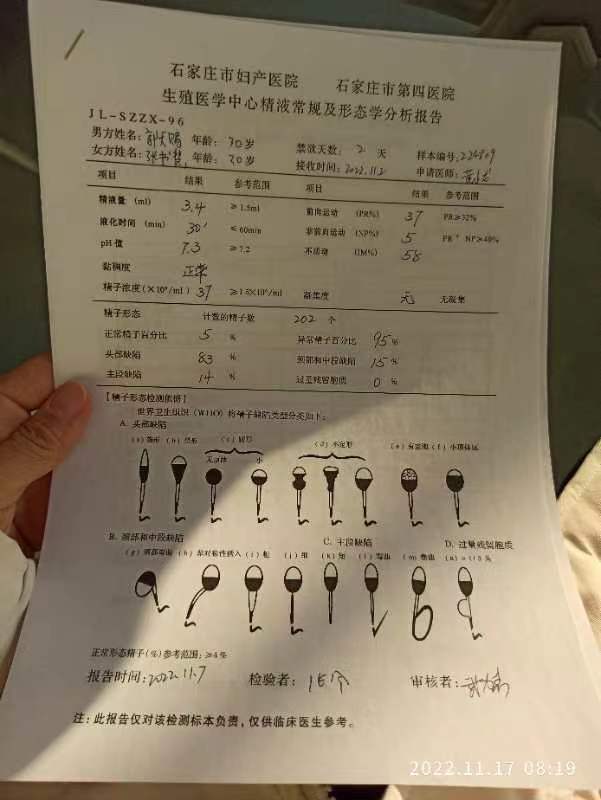 石家庄市妇产医院 石家庄市第四医院
生殖医学中心精液常规及形态学分析报告
JL-SZZX-96
男方姓名: 年龄: 30岁 禁欲天数: 2 天 样本编号:
女方姓名: 年龄: 30岁 接收时间: 2022.11.2 申请医师:
项目 结果 参考范围 项目 结果 参考范围
精液量 (ml) 3.4 ≥1.5ml 前向运动 (PR%) 37 PR≥32%
液化时间 (min) 30' ≤60min 非前向运动 (NP%) 5 PR+NP≥40%
pH值 7.3 ≥7.2 不活动 (IM%) 58
黏稠度 正常
精子浓度(×10⁶/ml) 37 ≥15×10⁶/ml 凝集度 无 无凝集
精子形态 计数的精子数 202 个
正常精子百分比 5 % 异常精子百分比 95 %
头部缺陷 83 % 颈部和中段缺陷 15 %
主段缺陷 14 % 过量残留胞质 0 %
【精子形态检测依据】
世界卫生组织(WHO)将精子缺陷类型分类如下:
A. 头部缺陷
(a)锥形 (b)梨形 (c)圆形 (d)不定形 (e)有空泡 (f)小顶体区
无顶体 小
B. 颈部和中段缺陷 C. 主段缺陷 D. 过量残留胞质
(g) (h)非对称性插入 (i)粗 (j)细 (k)短 (l)弯曲 (m)卷曲 (n)>1/3头
正常形态精子(%)参考范围:≥4%
报告时间: 2022.11.7 检验者: 审核者:
注: 此报告仅对该检测标本负责,仅供临床医生参考。
2022.11.17 08:19